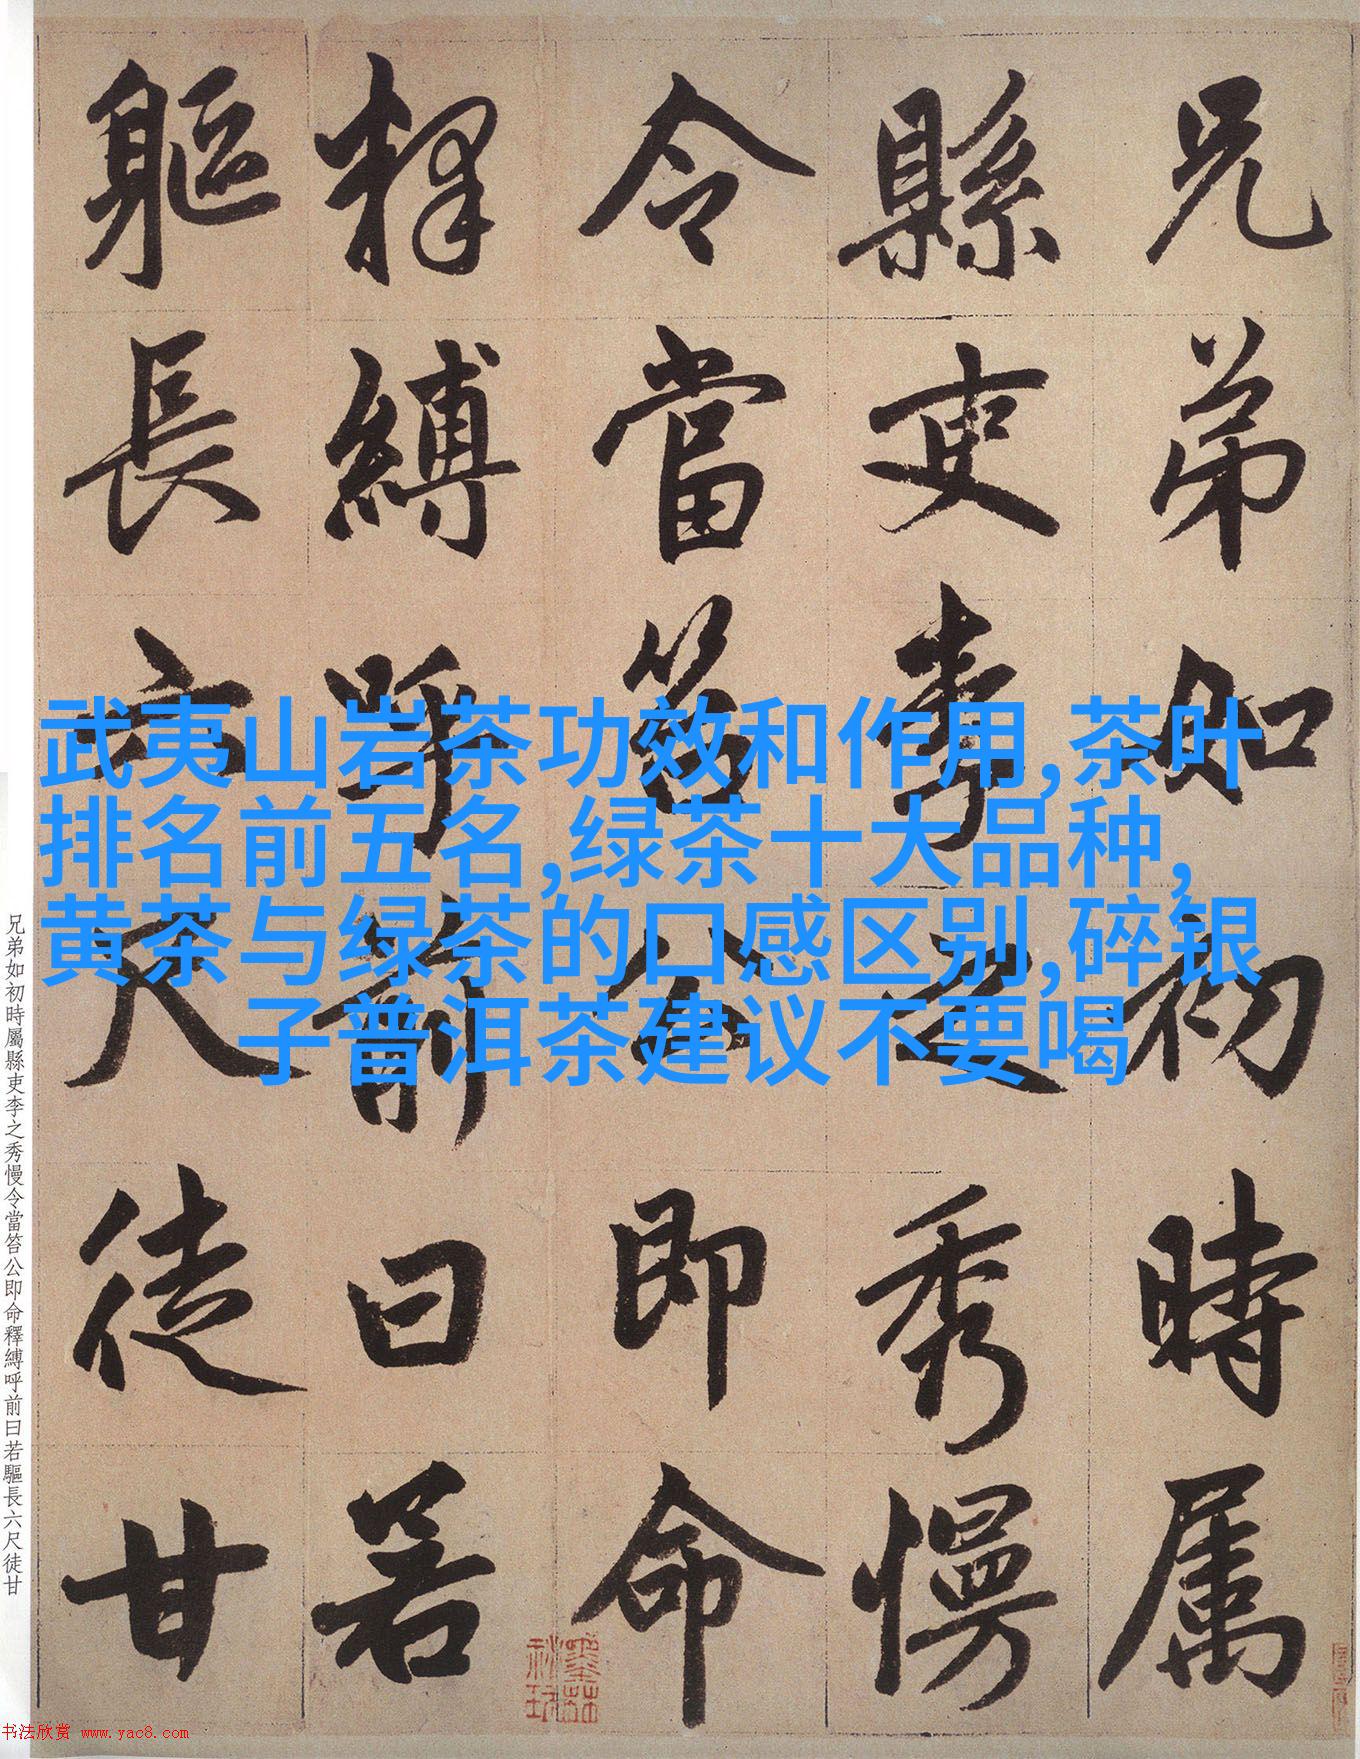 兄弟如初時属
縣吏李之秀慢
令當笞公即命
釋縛呼前曰若
軀長六尺徒甘
武夷山岩茶功效和作用,茶叶
排名前五名,绿茶十大品种,
黄茶与绿茶的口感区别,碎银
子普洱茶建议不要喝
兄弟如初時屬縣吏李之秀慢令當笞公即命釋縛呼前曰若驅長六尺徒甘
书法欣赏 www.yac8.com